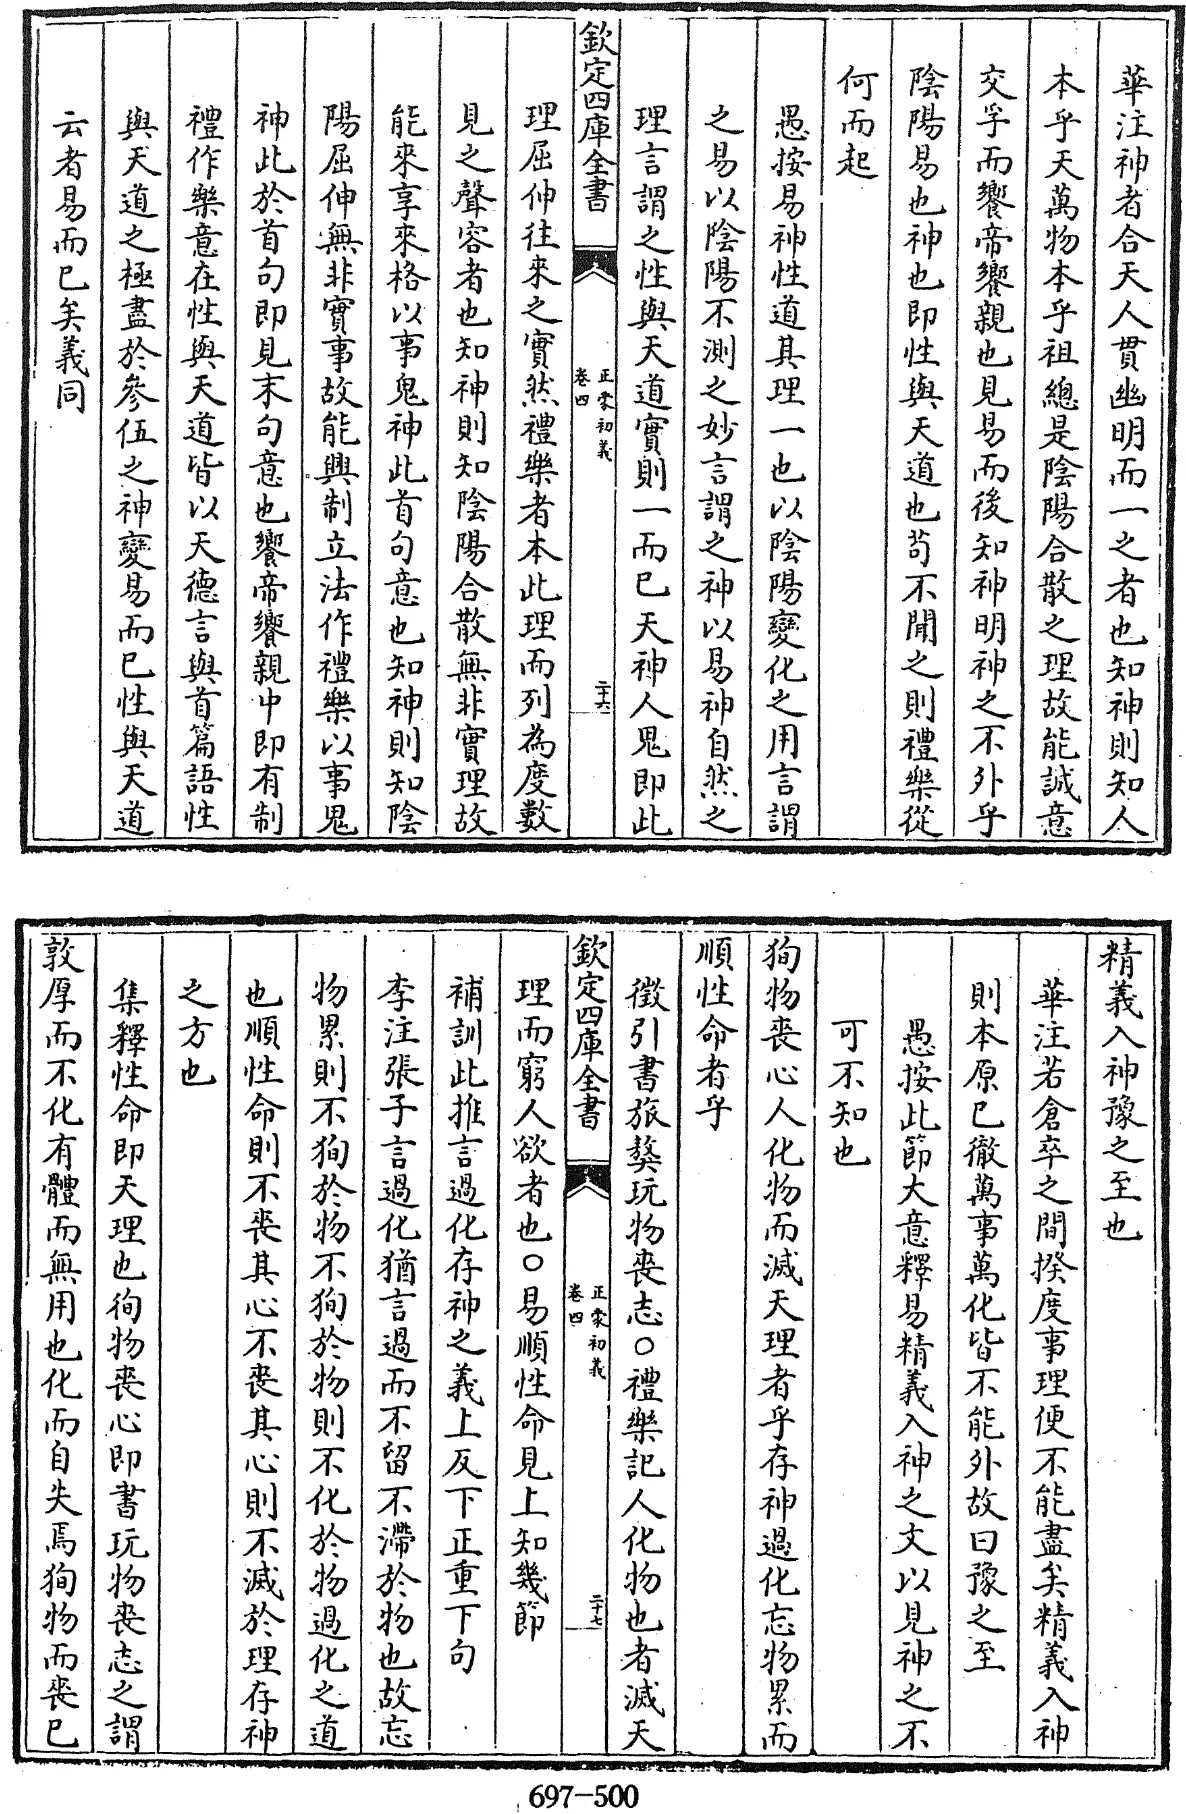 華注神者合天人貫幽明而一之者也知神則知人
本乎天萬物本乎祖總是陰陽合散之理故能誠意
交孚而饗帝饗親也見易而後知神明神之不外乎
陰陽易也神也即性與天道也苟不聞之則禮樂從
何而起
愚按易神性道其理一也以陰陽變化之用言謂
之易以陰陽不測之妙言謂之神以易神自然之
理言謂之性與天道實則一而已天神人鬼即此
欽定四庫全書
正蒙初義
卷四
二十六
理屈伸往來之實然禮樂者本此理而列為度數
見之聲容者也知神則知陰陽合散無非實理故
能來享來格以事鬼神此首句意也知神則知陰
陽屈伸無非實事故能興制立法作禮樂以事鬼
神此於首句即見末句意也饗帝饗親中即有制
禮作樂意在性與天道皆以天德言與首篇語性
與天道之極盡於參伍之神變易而已性與天道
云者易而已矣義同
精義入神豫之至也
華注若倉卒之間揆度事理便不能盡矣精義入神
則本原已徹萬事萬化皆不能外故曰豫之至
愚按此節大意釋易精義入神之文以見神之不
可不知也
狥物喪心人化物而滅天理者乎存神過化忘物累而
順性命者乎
徵引書旅獒玩物喪志○禮樂記人化物也者滅天
欽定四庫全書
正蒙初義
卷四
二十七
理而窮人欲者也○易順性命見上知幾節
補訓此推言過化存神之義上反下正重下句
李注張子言過化猶言過而不留不滯於物也故忘
物累則不狥於物不狥於物則不化於物過化之道
也順性命則不喪其心不喪其心則不滅於理存神
之方也
集釋性命即天理也徇物喪心即書玩物喪志之謂
敦厚而不化有體而無用也化而自失焉狥物而喪已
697-500